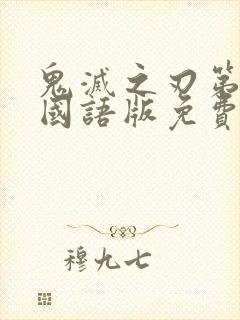 鬼滅之刃第
國語版免費
穆九七